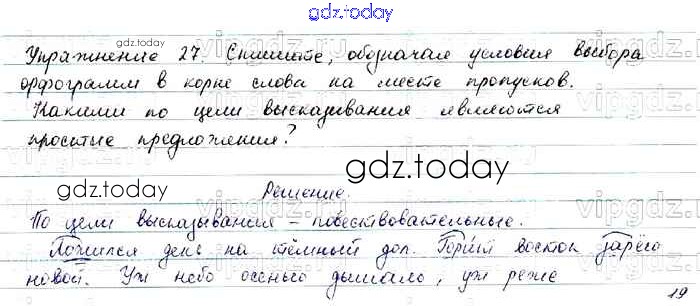 gdz.today
Упражнение 27. Спишите, обозначая условия выбора
gdz.today
орфограмм в корне слова на месте пропусков.
Какими по цели высказывания являются
простые предложения?
gdz.today
gdz.today
Решение.
По цели высказывания – повествовательные.
Ложился день на тёмный дол. Горит восток зарёю
новой. Уж небо осенью дышало, уж реже
19